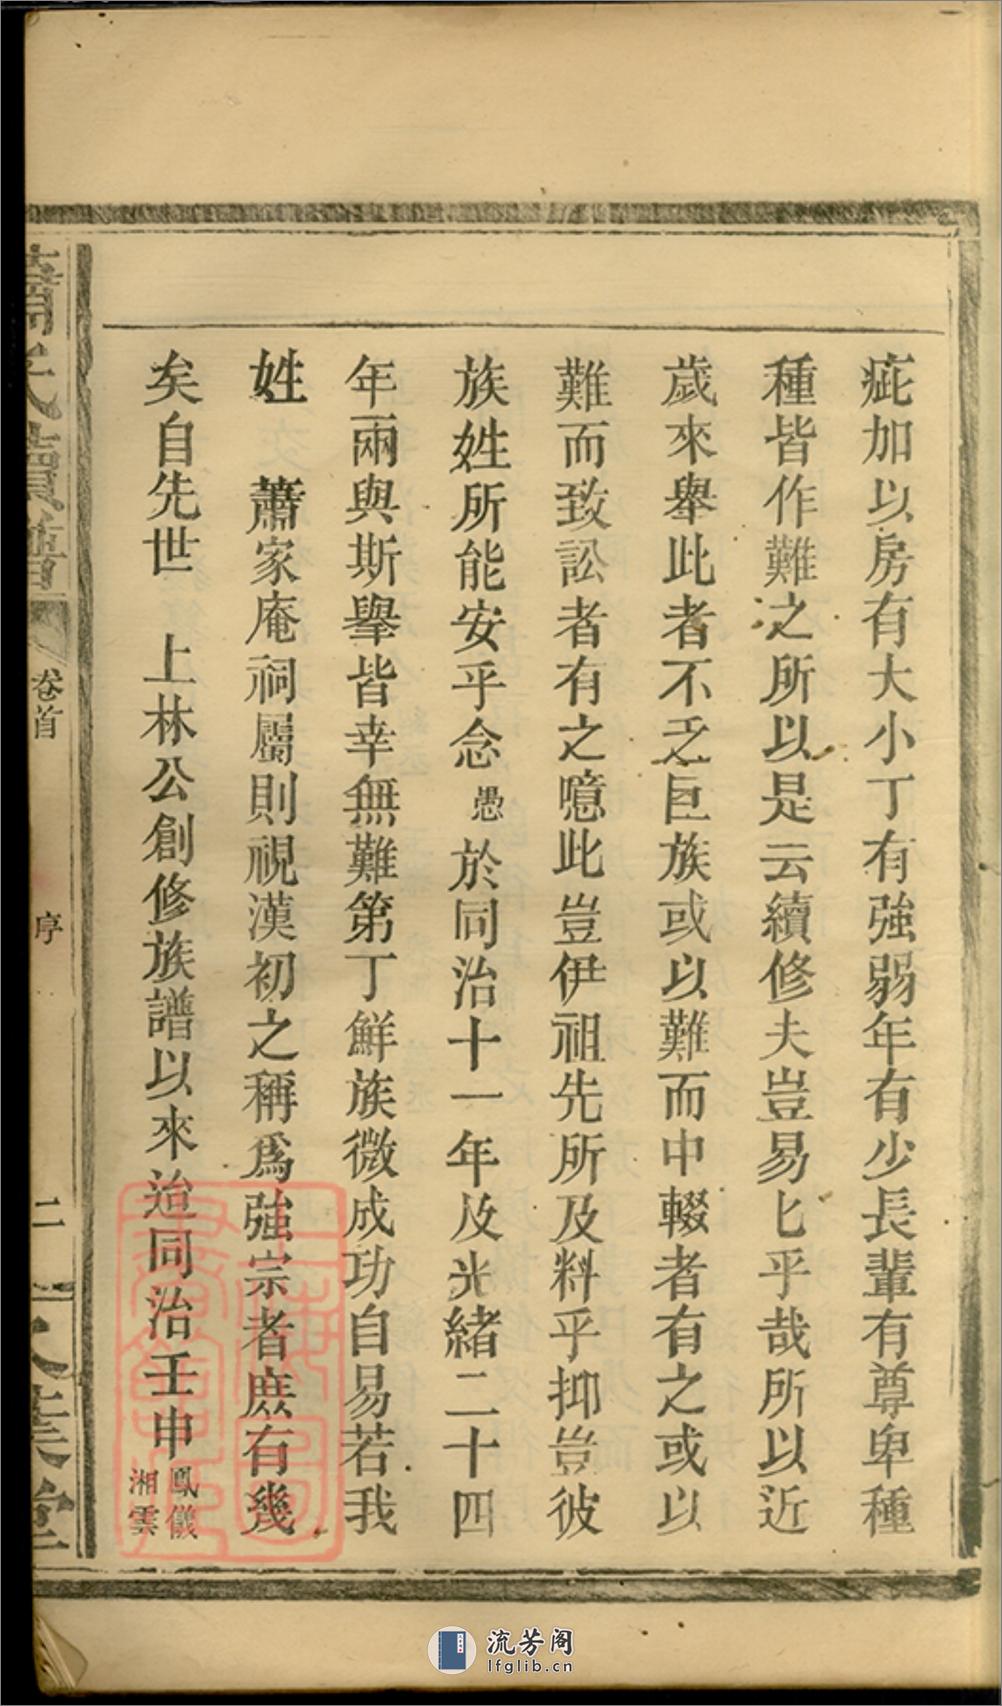 疵加以房有大小丁有強弱年有少長輩有尊卑種
種皆作難之所以是云續修夫豈易匕乎哉所以近
歲來舉此者不乏巨族或以難而中輟者有之或以
難而致訟者有之噫此豈伊祖先所及料乎抑豈彼
族姓所能安乎念愚於同治十一年及光緒二十四
年兩與斯舉皆幸無難第丁鮮族微成功自易若我
姓 蕭家庵祠屬則視漢初之稱為強宗者庶有幾
矣自先世 上林公創修族譜以來迨同治壬申鳳儀
湘雲
蕭氏續譜
卷首
序
二
流芳阁
lfglib.cn